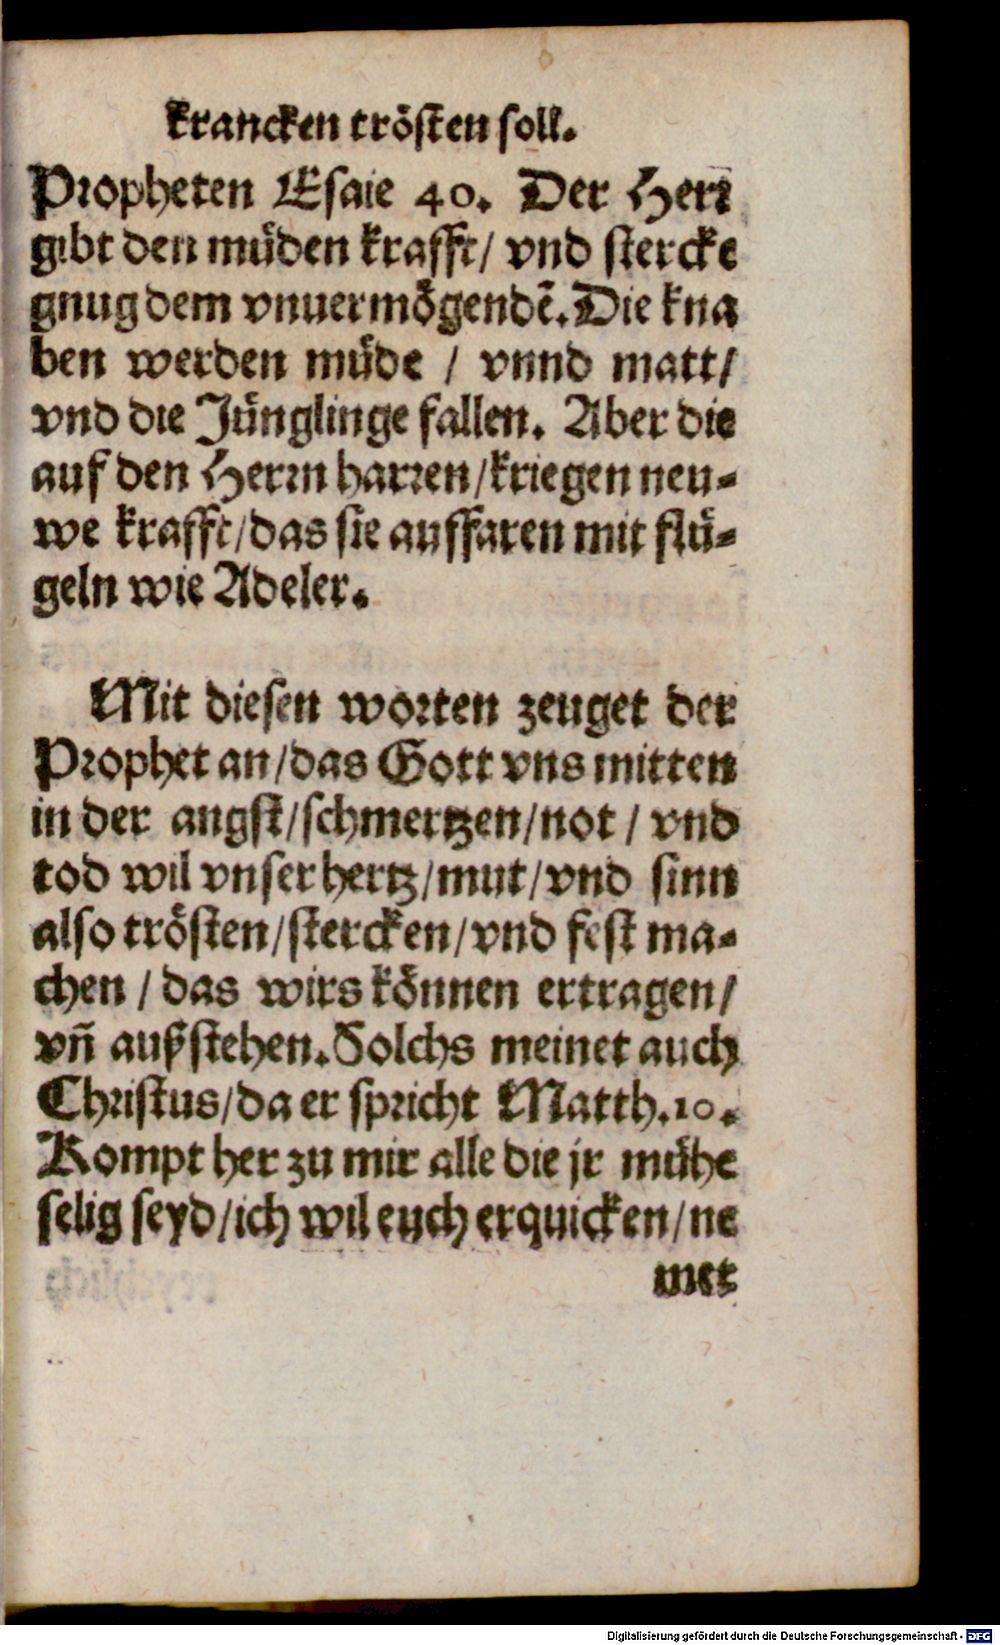 krancken trösten soll.
Propheten Esaie 40. Der Herr
gibt den müden krafft/ vnd stercke
gnug dem vnuermögendẽ. Die kna
ben werden müde / vnnd matt/
vnd die Jünglinge fallen. Aber die
auf den Herrn harren/kriegen neu-
we krafft/das sie auffaren mit flü-
geln wie Adeler.
Mit diesen worten zeuget der
Prophet an/das Gott vns mitten
in der angst/schmertzen/not / vnd
tod wil vnser hertz/mut/vnd sinn
also trösten/stercken/vnd fest ma-
chen / das wirs können ertragen/
vñ außstehen. Solchs meinet auch
Christus/da er spricht Matth.10.
Kompt her zu mir alle die jr mühe
selig seyd/ich wil euch erquicken/ne
met
Digitalisierung gefördert durch die Deutsche Forschungsgemeinschaft - DFG